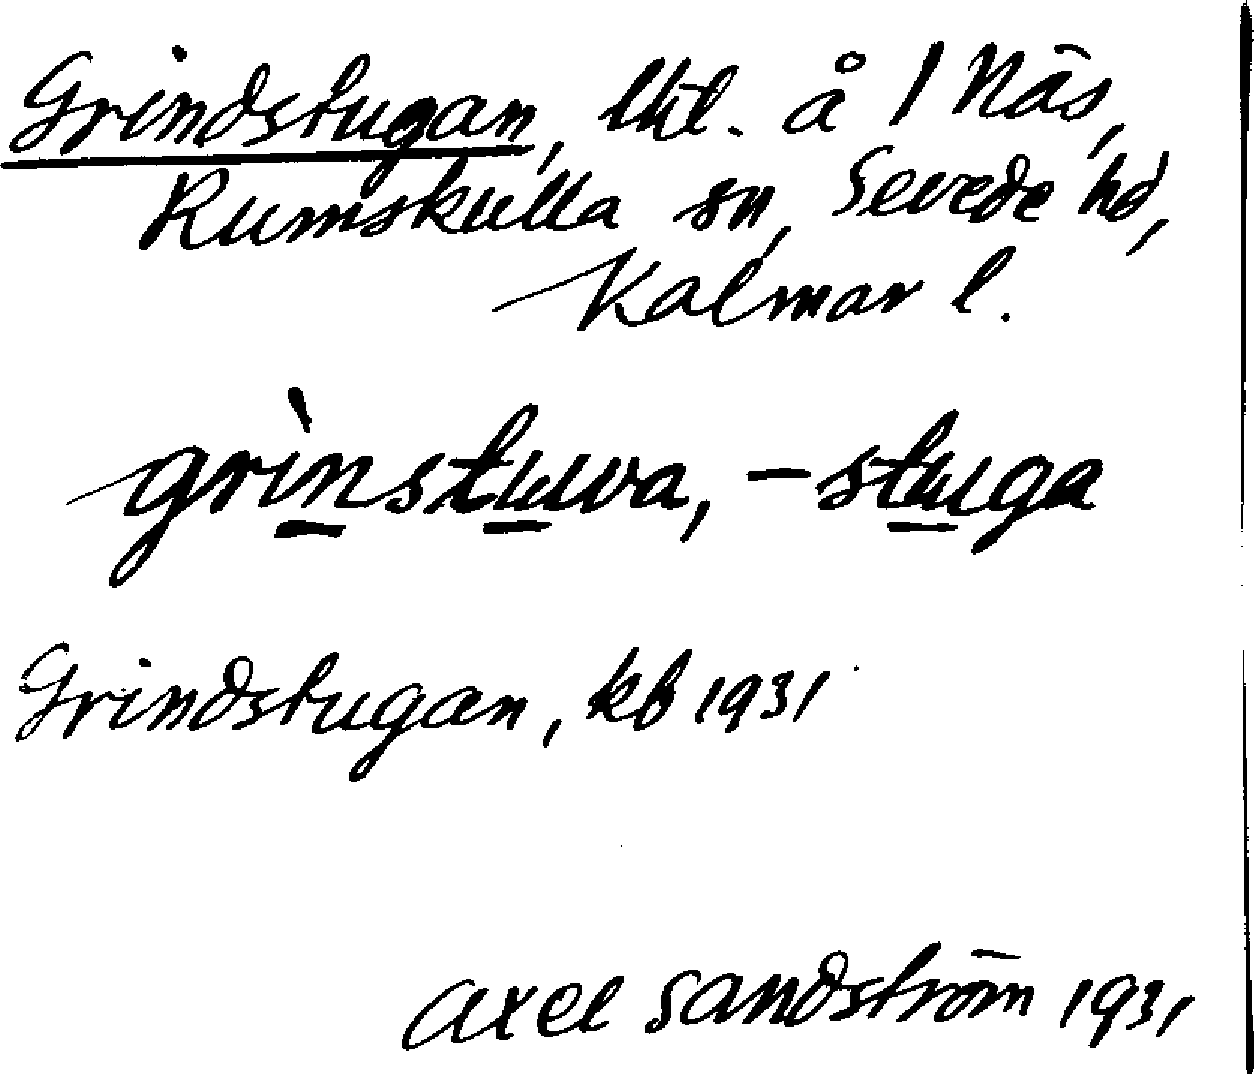 Grindstugan, lht. å 1 Näs,
Rumskulla sn, Sevede hd,
Kalmar l.
grìnstuwa, -stuga
Grindstugan, kb 1931
Axel Sandström 1931